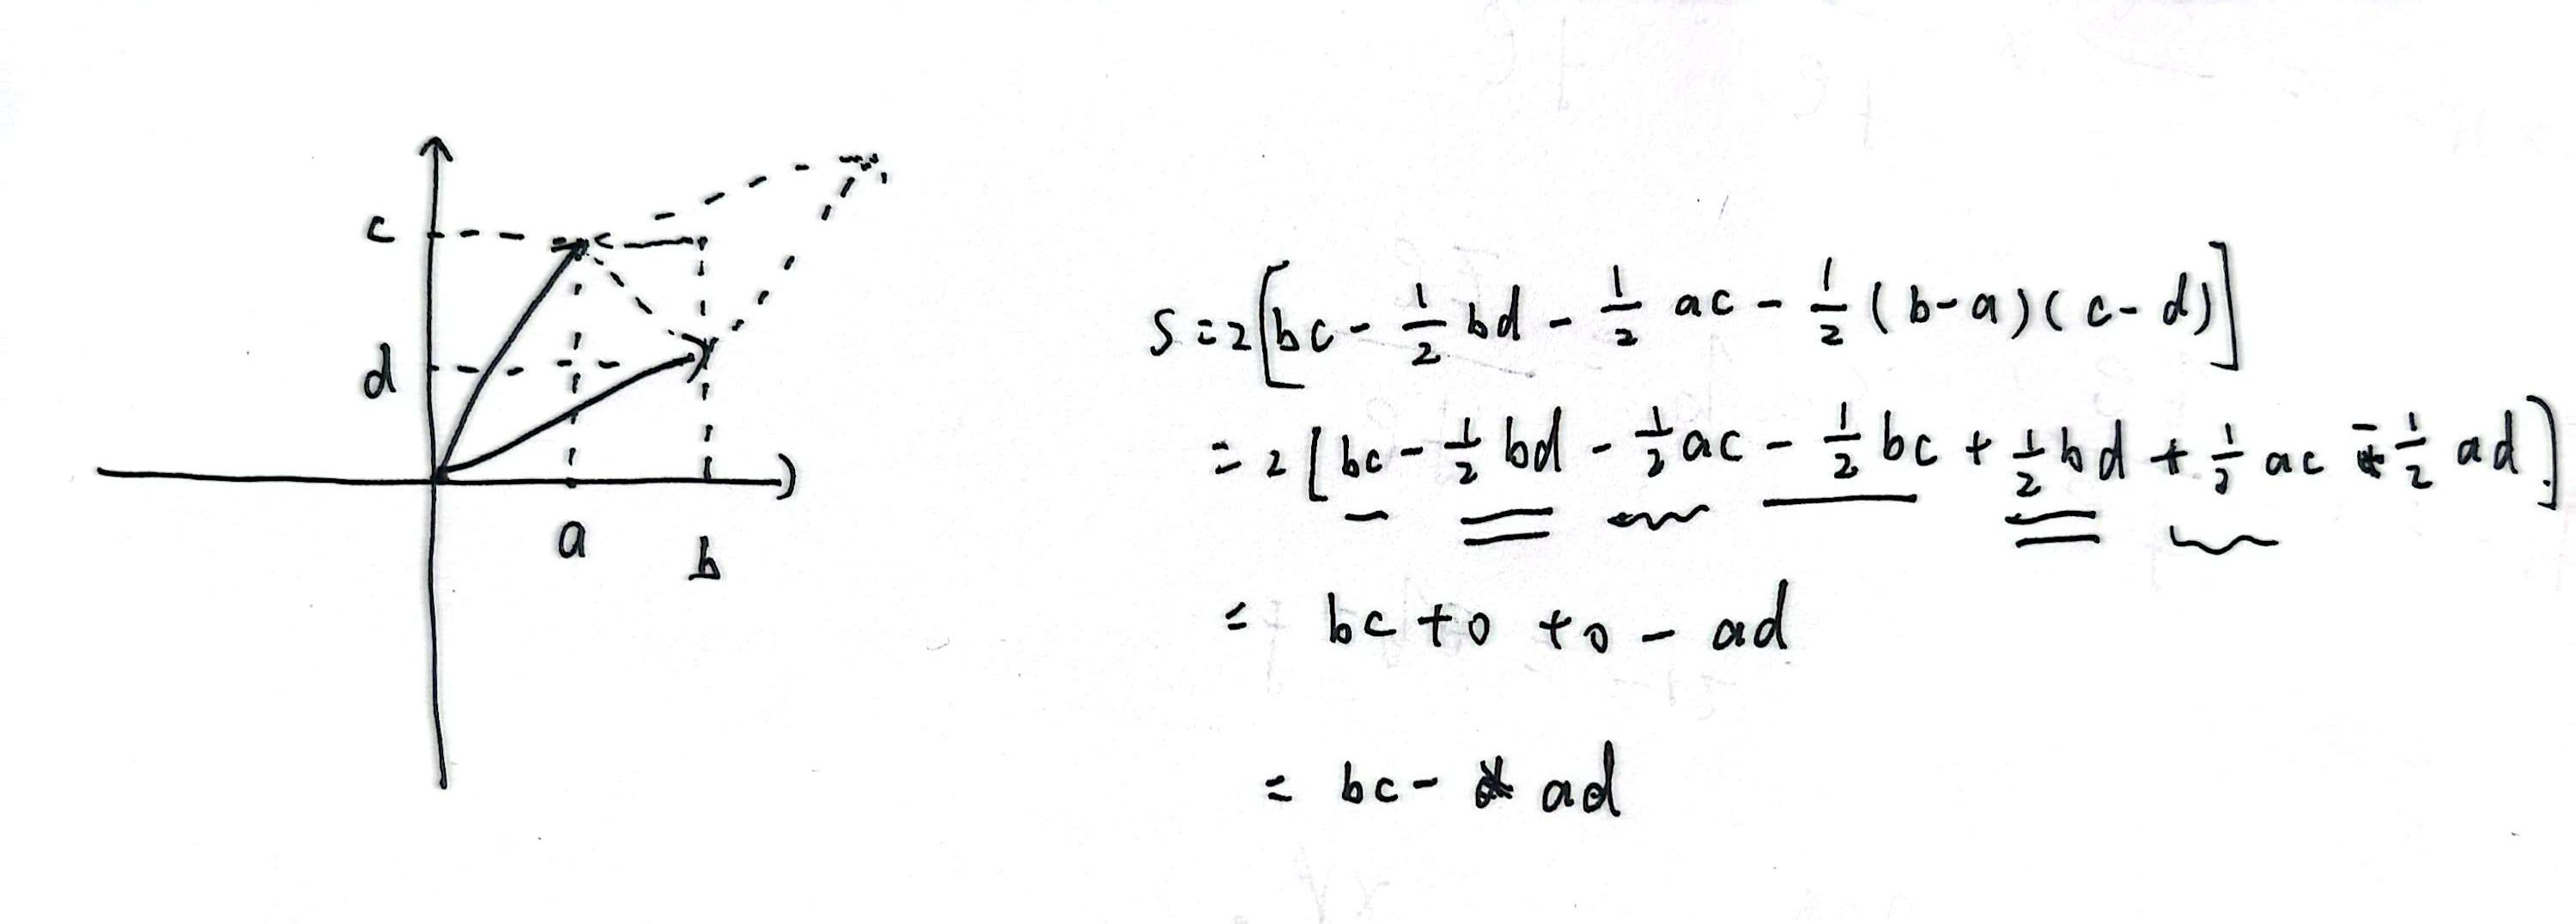 c
d
a
b
S=2[bc-½bd-½ac-½(b-a)(c-d)]
=2[bc-½bd-½ac-½bc+½bd+½ac-½ad]
= bc+0+0-ad
= bc-ad